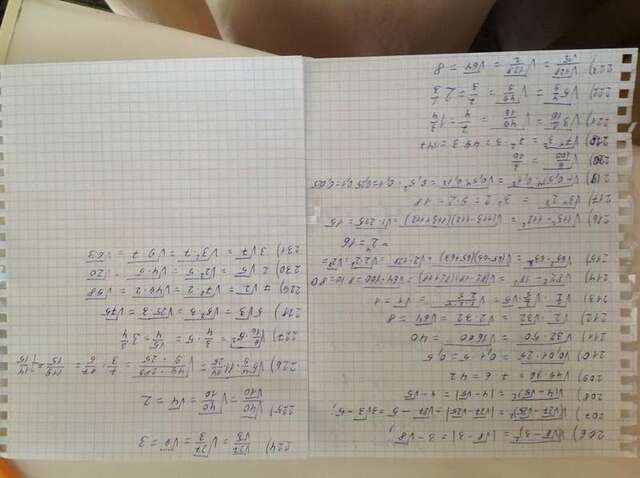 206) √(√8 − 3)² = |√8 − 3| = 3 − √8;
207) √(√27 − √25)² = |√27 − √25| = √27 − 5 = 3√3 − 5;
208) √(4 − √5)² = |4 − √5| = 4 − √5
209) √49·36 = 7·6 = 42
210) √0,01·25 = 0,1·5 = 0,5
211) √32·50 = √1600 = 40
212) √2 · √32 = √2·32 = √64 = 8
213) = √1 = 1
214) √82² − 18² = √(82−18)(82+18) = √64·100 = 8·10 = 80
215) √65² − 63² = √(65−63)(65+63) = √2·128 = √2·2⁷ = √2⁸ =
= 2⁴ = 16
216) √113² − 112² = √(113−112)(113+112) = √1·225 = 15
217) √3⁴·2² = 3²·2 = 9·2 = 18
√(−0,5)⁴·0,1² = √0,5⁴·0,1² = 0,5²·0,1 = 0,25·0,1 = 0,025
√9/100 = 3/10
√7⁴·3² = 7²·3 = 49·3 = 147
221) = √49/16 = 7/4 = 1 3/4
222) √5 4/9 = √49/9 = 7/3 = 2 1/3
223) √128/√2 = √128/2 = √64 = 8
224) √27/√3 = √27/3 = √9 = 3
225) √40/√10 = √40/10 = √4 = 2
226) = 7/3 · 17/5 = 119/15 = 7 14/15
227) √9/16·5² = 3/4 · 5 = 15/4 = 3 3/4
228) 5√3 = √5²·3 = √25·3 = √75
229) 7√2 = √7²·2 = √49·2 = √98
230) 2√5 = √2²·5 = √4·5 = √20
231) 3√7 = √3²·7 = √9·7 = √63